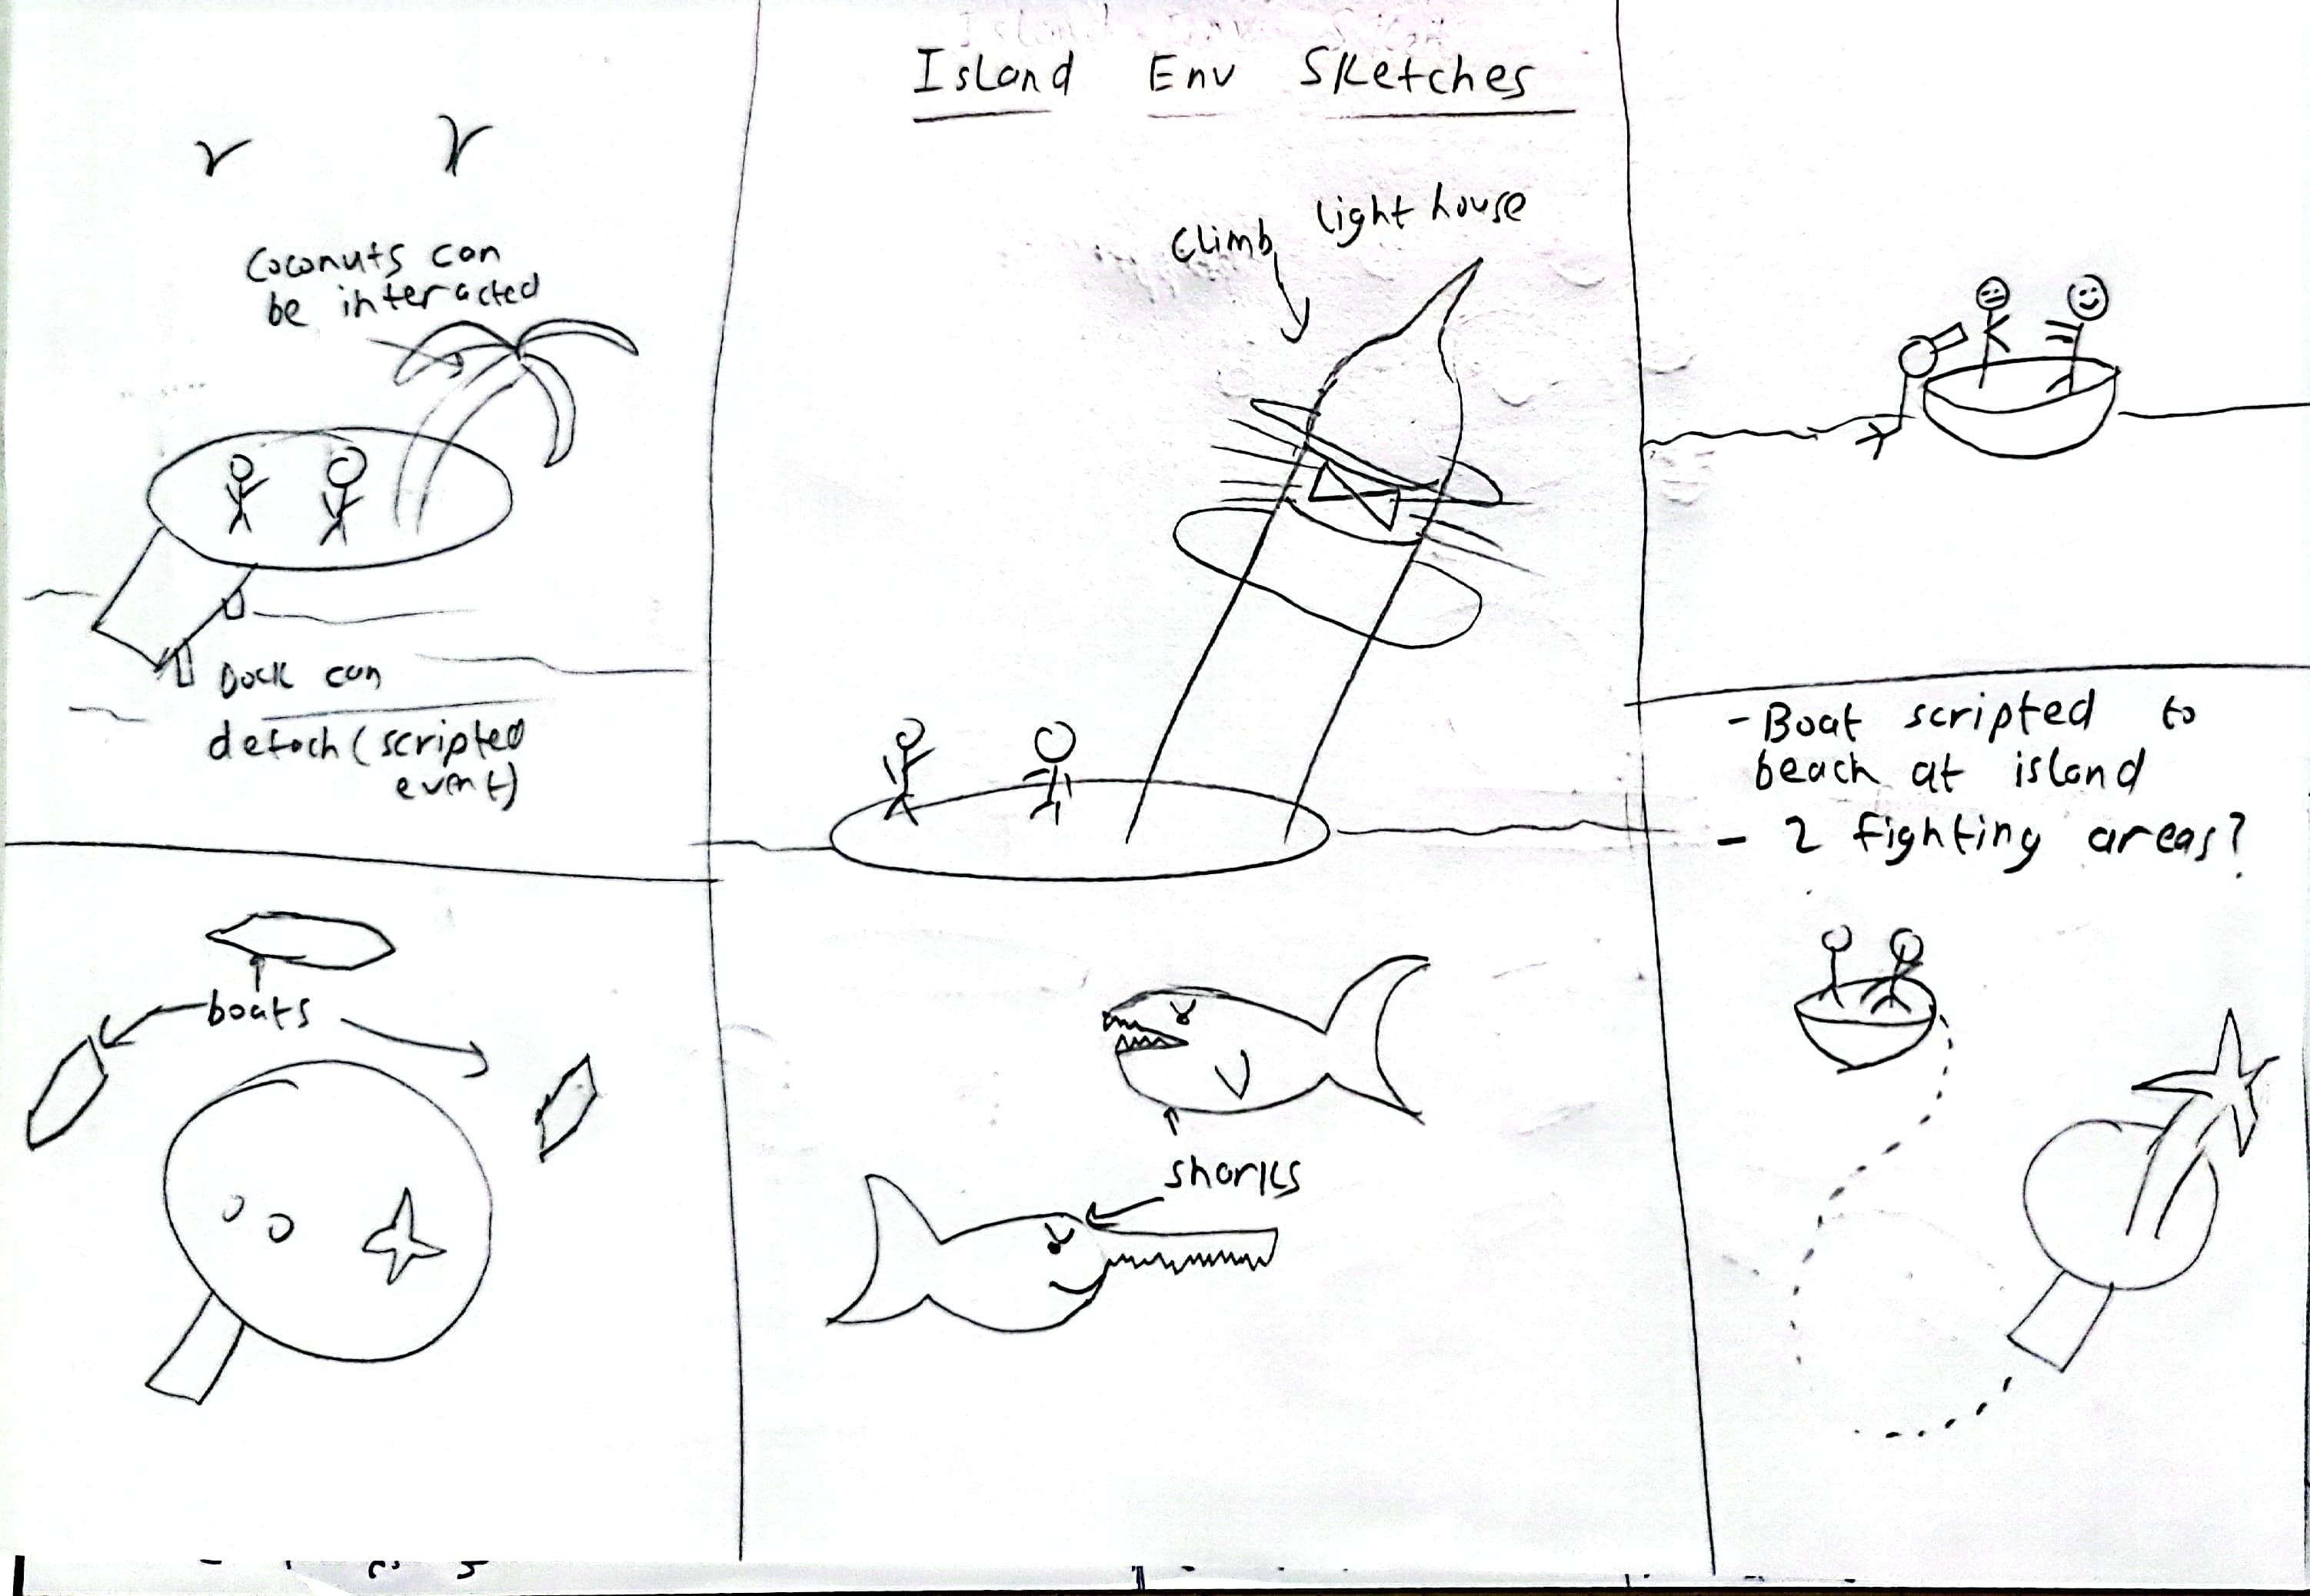 Island Env Sketches
Coconuts can
be interacted
Dock can
detach (scripted
event)
Climb
light house
- Boat scripted to
beach at island
- 2 fighting areas?
boats
sharks